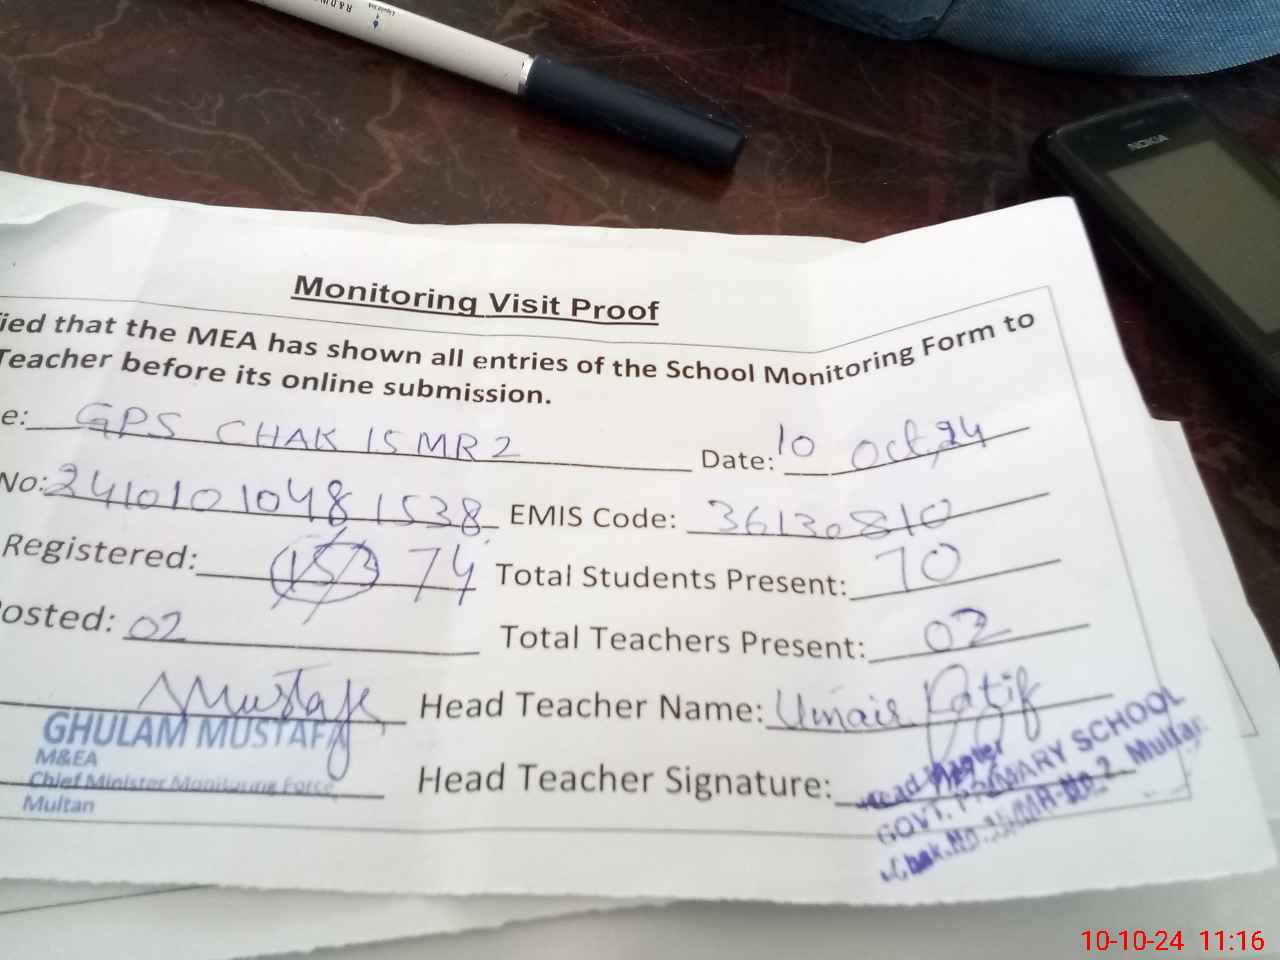 R&D
NOKIA
Monitoring Visit Proof
ied that the MEA has shown all entries of the School Monitoring Form to
Teacher before its online submission.
e: GPS CHAK 15 MR 2 Date: 10 Oct, 24
No: 24101010481538 EMIS Code: 36130810
Registered: 74 Total Students Present: 70
osted: 02 Total Teachers Present: 02
Mustafa Head Teacher Name: Umair Latif
GHULAM MUSTAFA
M&EA
Chief Minister Monitoring Force
Multan
Head Teacher Signature:
Head
GOVT. PRIMARY SCHOOL
Chak.No.15/MR-No.2 Multan
10-10-24 11:16